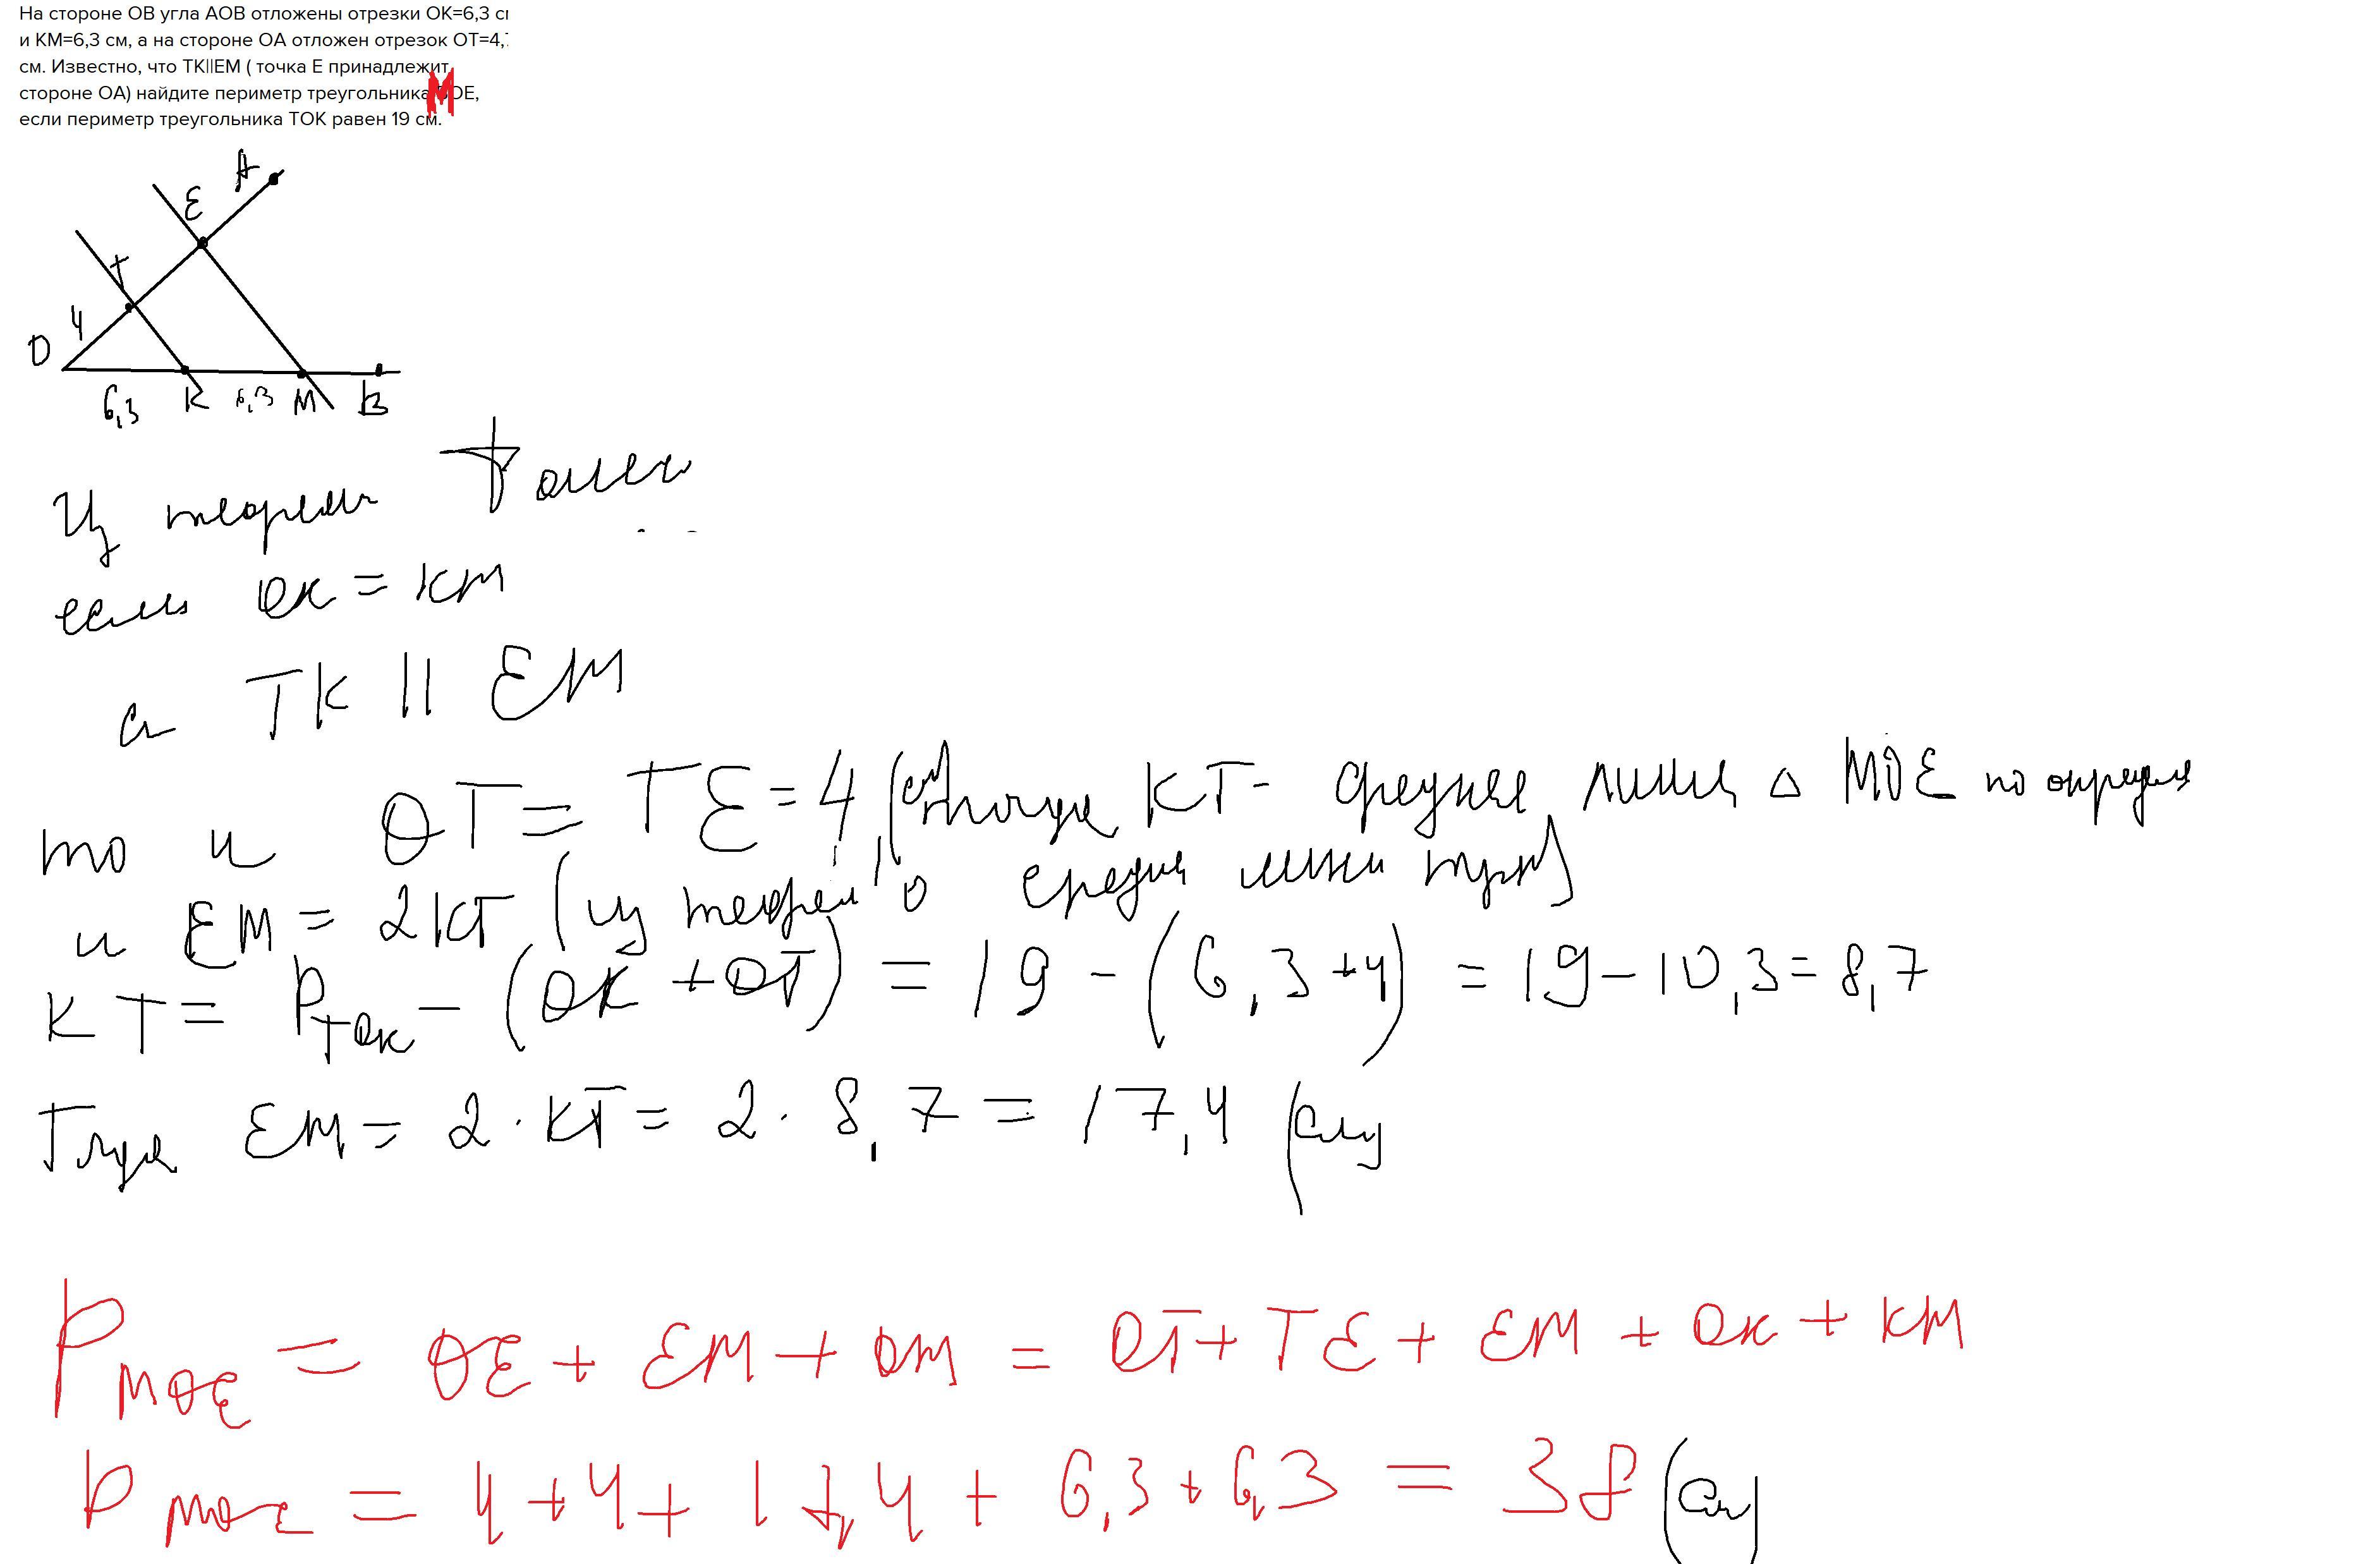 На стороне ОВ угла АОВ отложены отрезки ОК=6,3 см
и КМ=6,3 см, а на стороне ОА отложен отрезок ОТ=4,
см. Известно, что ТК||ЕМ ( точка Е принадлежит
стороне ОА) найдите периметр треугольника МОЕ,
если периметр треугольника ТОК равен 19 см.
A
E
T
4
O
6,3 K 6,3 M B
Из теоремы Фалеса
если OK = KM
а TK || EM
то и OT = TE = 4, (отсюда KT - средняя линия △ MOE по определ
и EM = 2KT (из теоремы о средней линии
KT = P TOK - (OK + OT) = 19 - (6,3 + 4) = 19 - 10,3 = 8,7
Тогда EM = 2 · KT = 2 · 8,7 = 17,4 (см)
P MOE = OE + EM + OM = OT + TE + EM + OK + KM
P MOE = 4 + 4 + 17,4 + 6,3 + 6,3 = 38 (см)